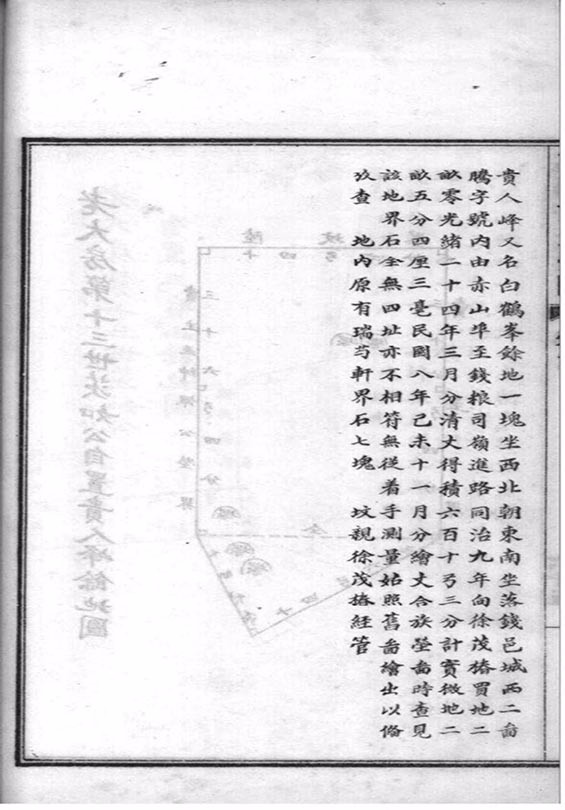 貴人峰又名白鶴峯餘地一塊坐西北朝東南坐落錢邑城西二啚
騰字號內由赤山埠至錢粮司嶺進路同治九年向徐茂椿買地二
畝零光緒二十四年三月分清丈得積六百十弓三分計實徵地二
畝五分四厘三毫民國八年己未十一月分繪丈合族塋啚時查見
該地界石全無四址亦不相符無從着手測量姑照舊啚繪出以俻
攷查 地內原有瑞芍軒界石七塊 坟親徐茂椿經管
老大房第十三世洪如公自置貴人峰餘地圖